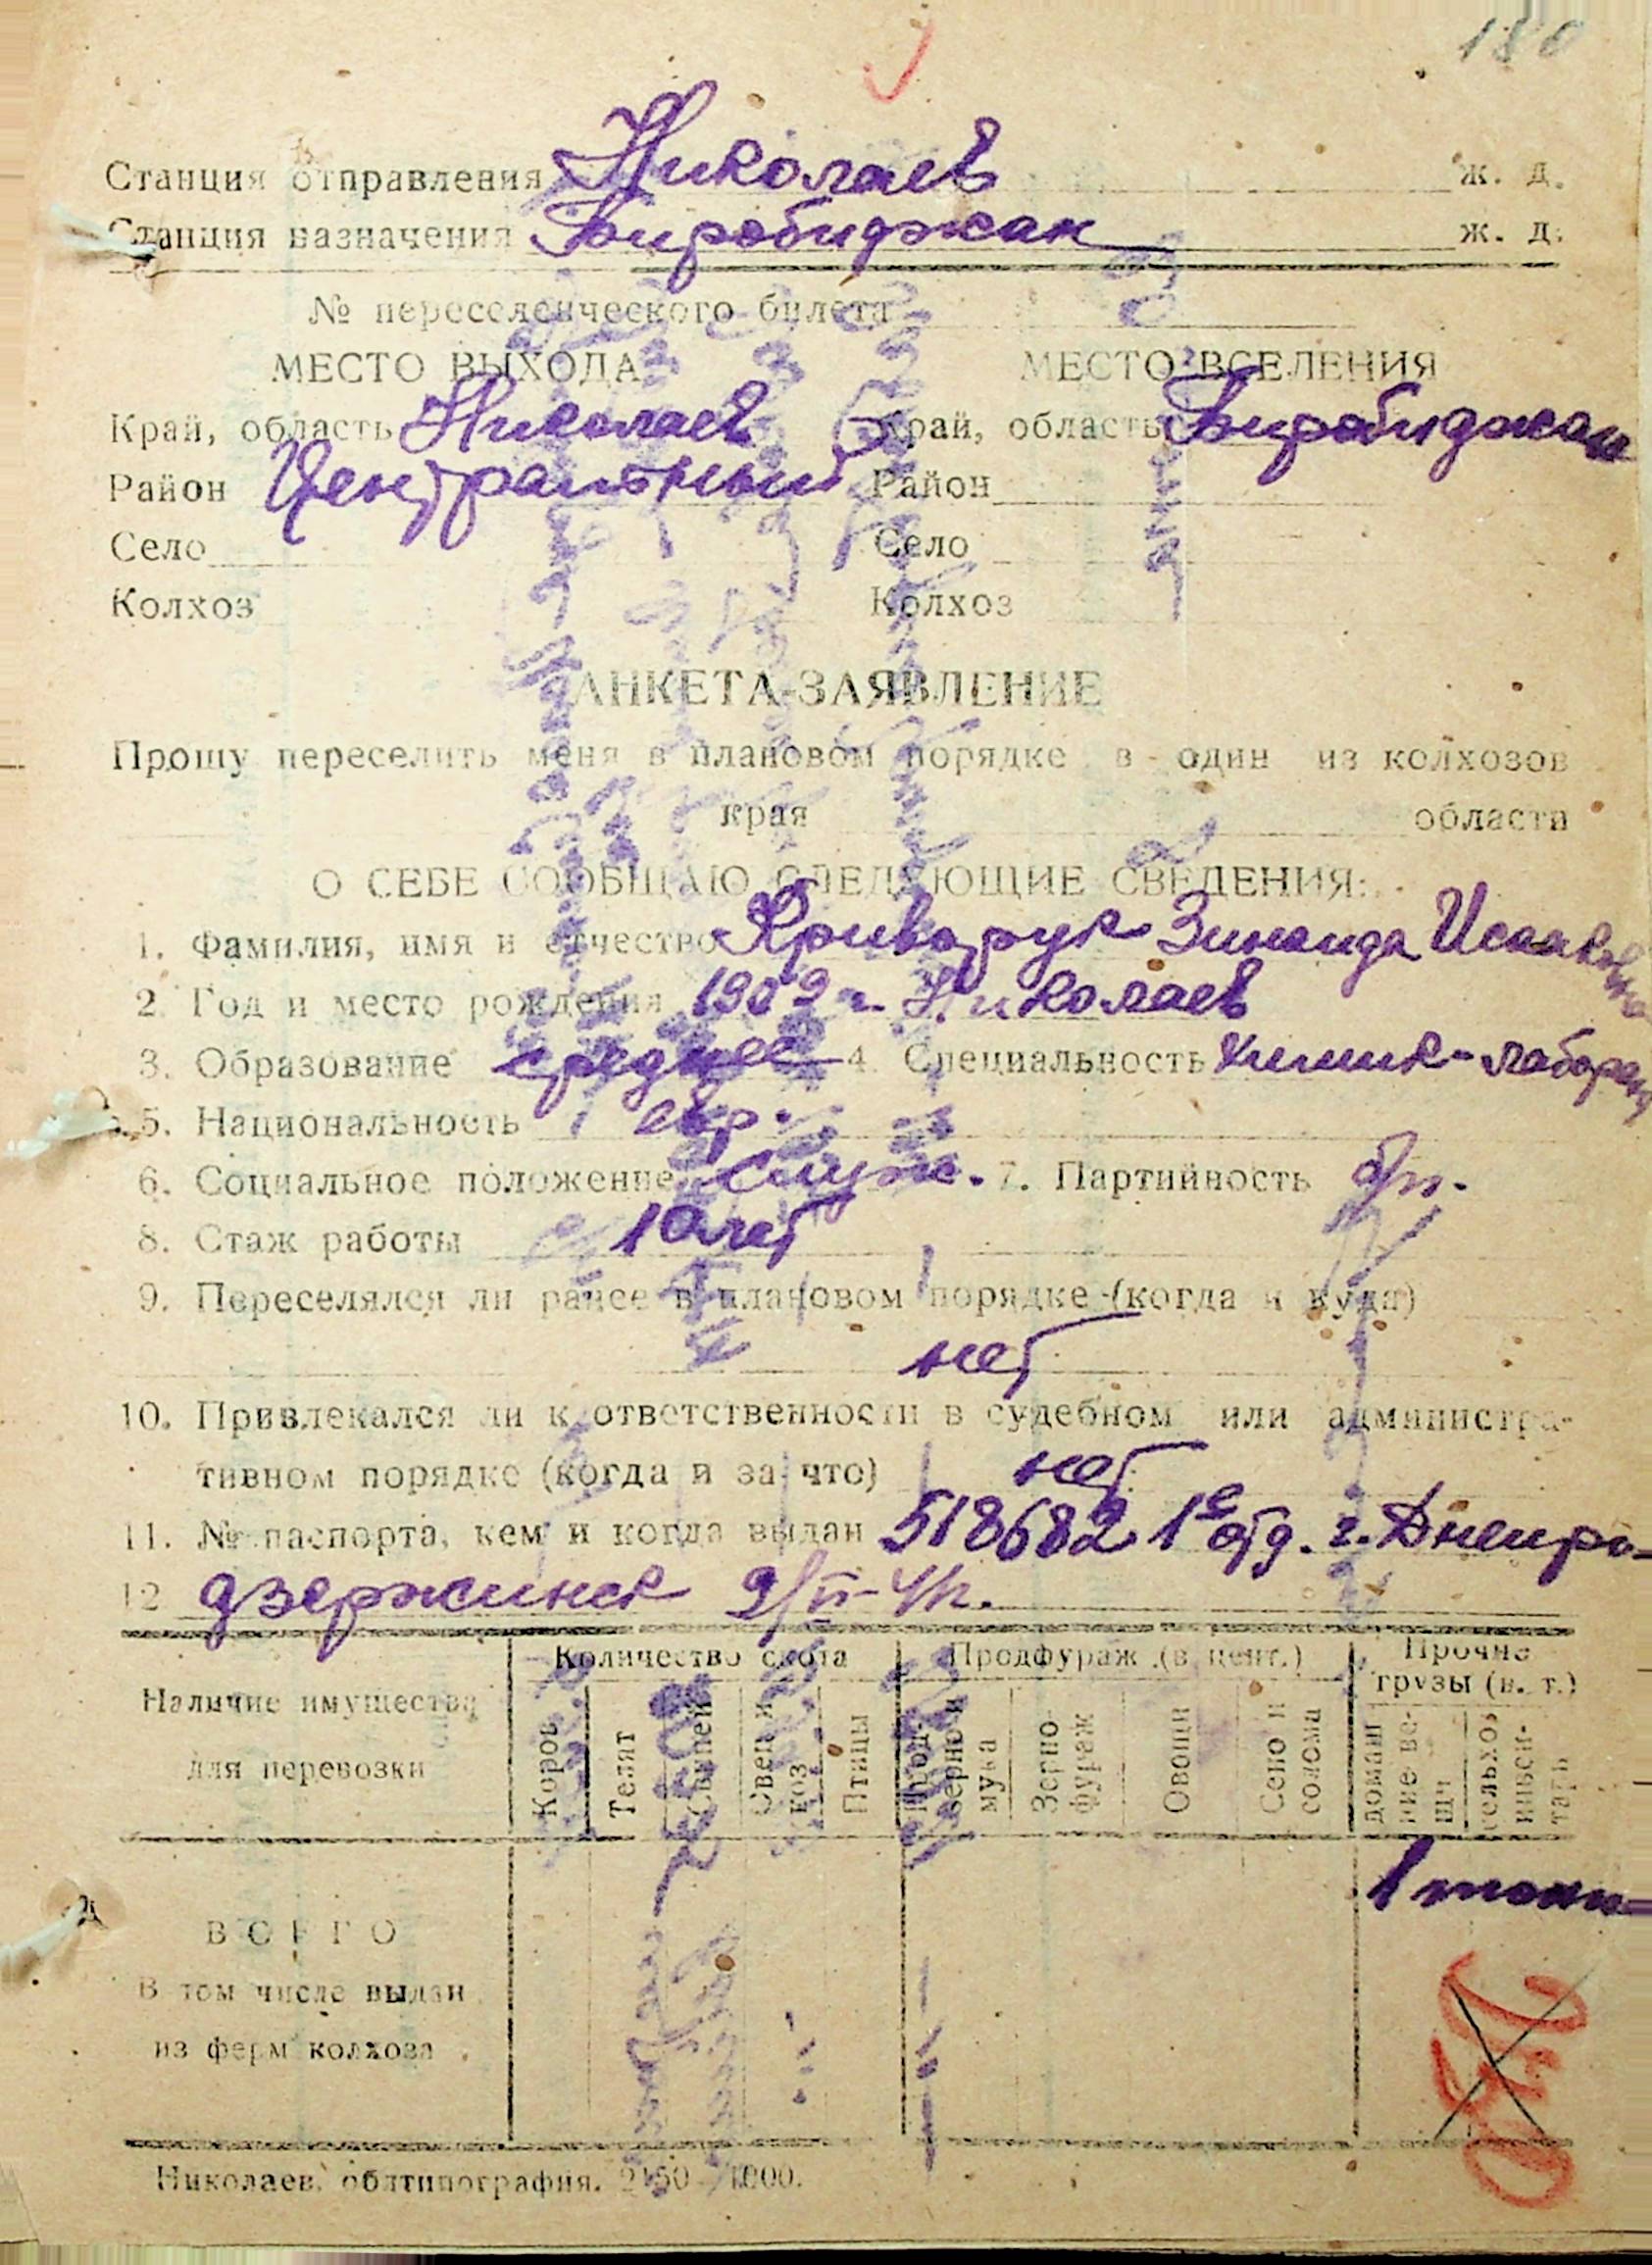 180
Станция отправления Николаев ж. д.
Станция назначения Биробиджан ж. д.
№ переселенческого билета
МЕСТО ВЫХОДА МЕСТО ВСЕЛЕНИЯ
Край, область Николаев Край, область Биробиджан
Район Центральный Район
Село Село
Колхоз Колхоз
АНКЕТА-ЗАЯВЛЕНИЕ
Прошу переселить меня в плановом порядке в один из колхозов
края области
О СЕБЕ СООБЩАЮ СЛЕДУЮЩИЕ СВЕДЕНИЯ:
1. Фамилия, имя и отчество Криворук Зинаида Исааковна
2. Год и место рождения 1909 г. Николаев
3. Образование среднее 4. Специальность химик-лаборант
5. Национальность евр.
6. Социальное положение служ. 7. Партийность б/п.
8. Стаж работы 10 лет
9. Переселялся ли ранее в плановом порядке (когда и куда)
нет
10. Привлекался ли к ответственности в судебном или администра-
тивном порядке (когда и за что) нет
11. № паспорта, кем и когда выдан 518682 1е отд. г. Днепро-
12 дзержинск
Количество скота Продфураж (в цент.) Прочие грузы (в. т.)
Наличие имущества
для перевозки
Коров Телят Свиней Овец и коз Птицы Прод-зерно и мука Зерно-фураж Овощи Сено и солома домашние ве-щи сельхоз инвен-тарь
1 тонн
ВСЕГО
В том числе выдан
из ферм колхоза
Николаев, облтипография. 2150 1000.